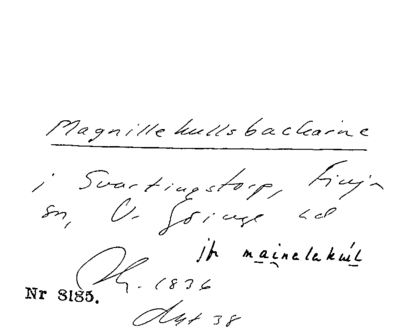 Magnillekullsbackarne
i Svartingstorp, Finja
sn, V. Göinge hd
jfr mainelakul
1836
Nr 8185.
Akt 38